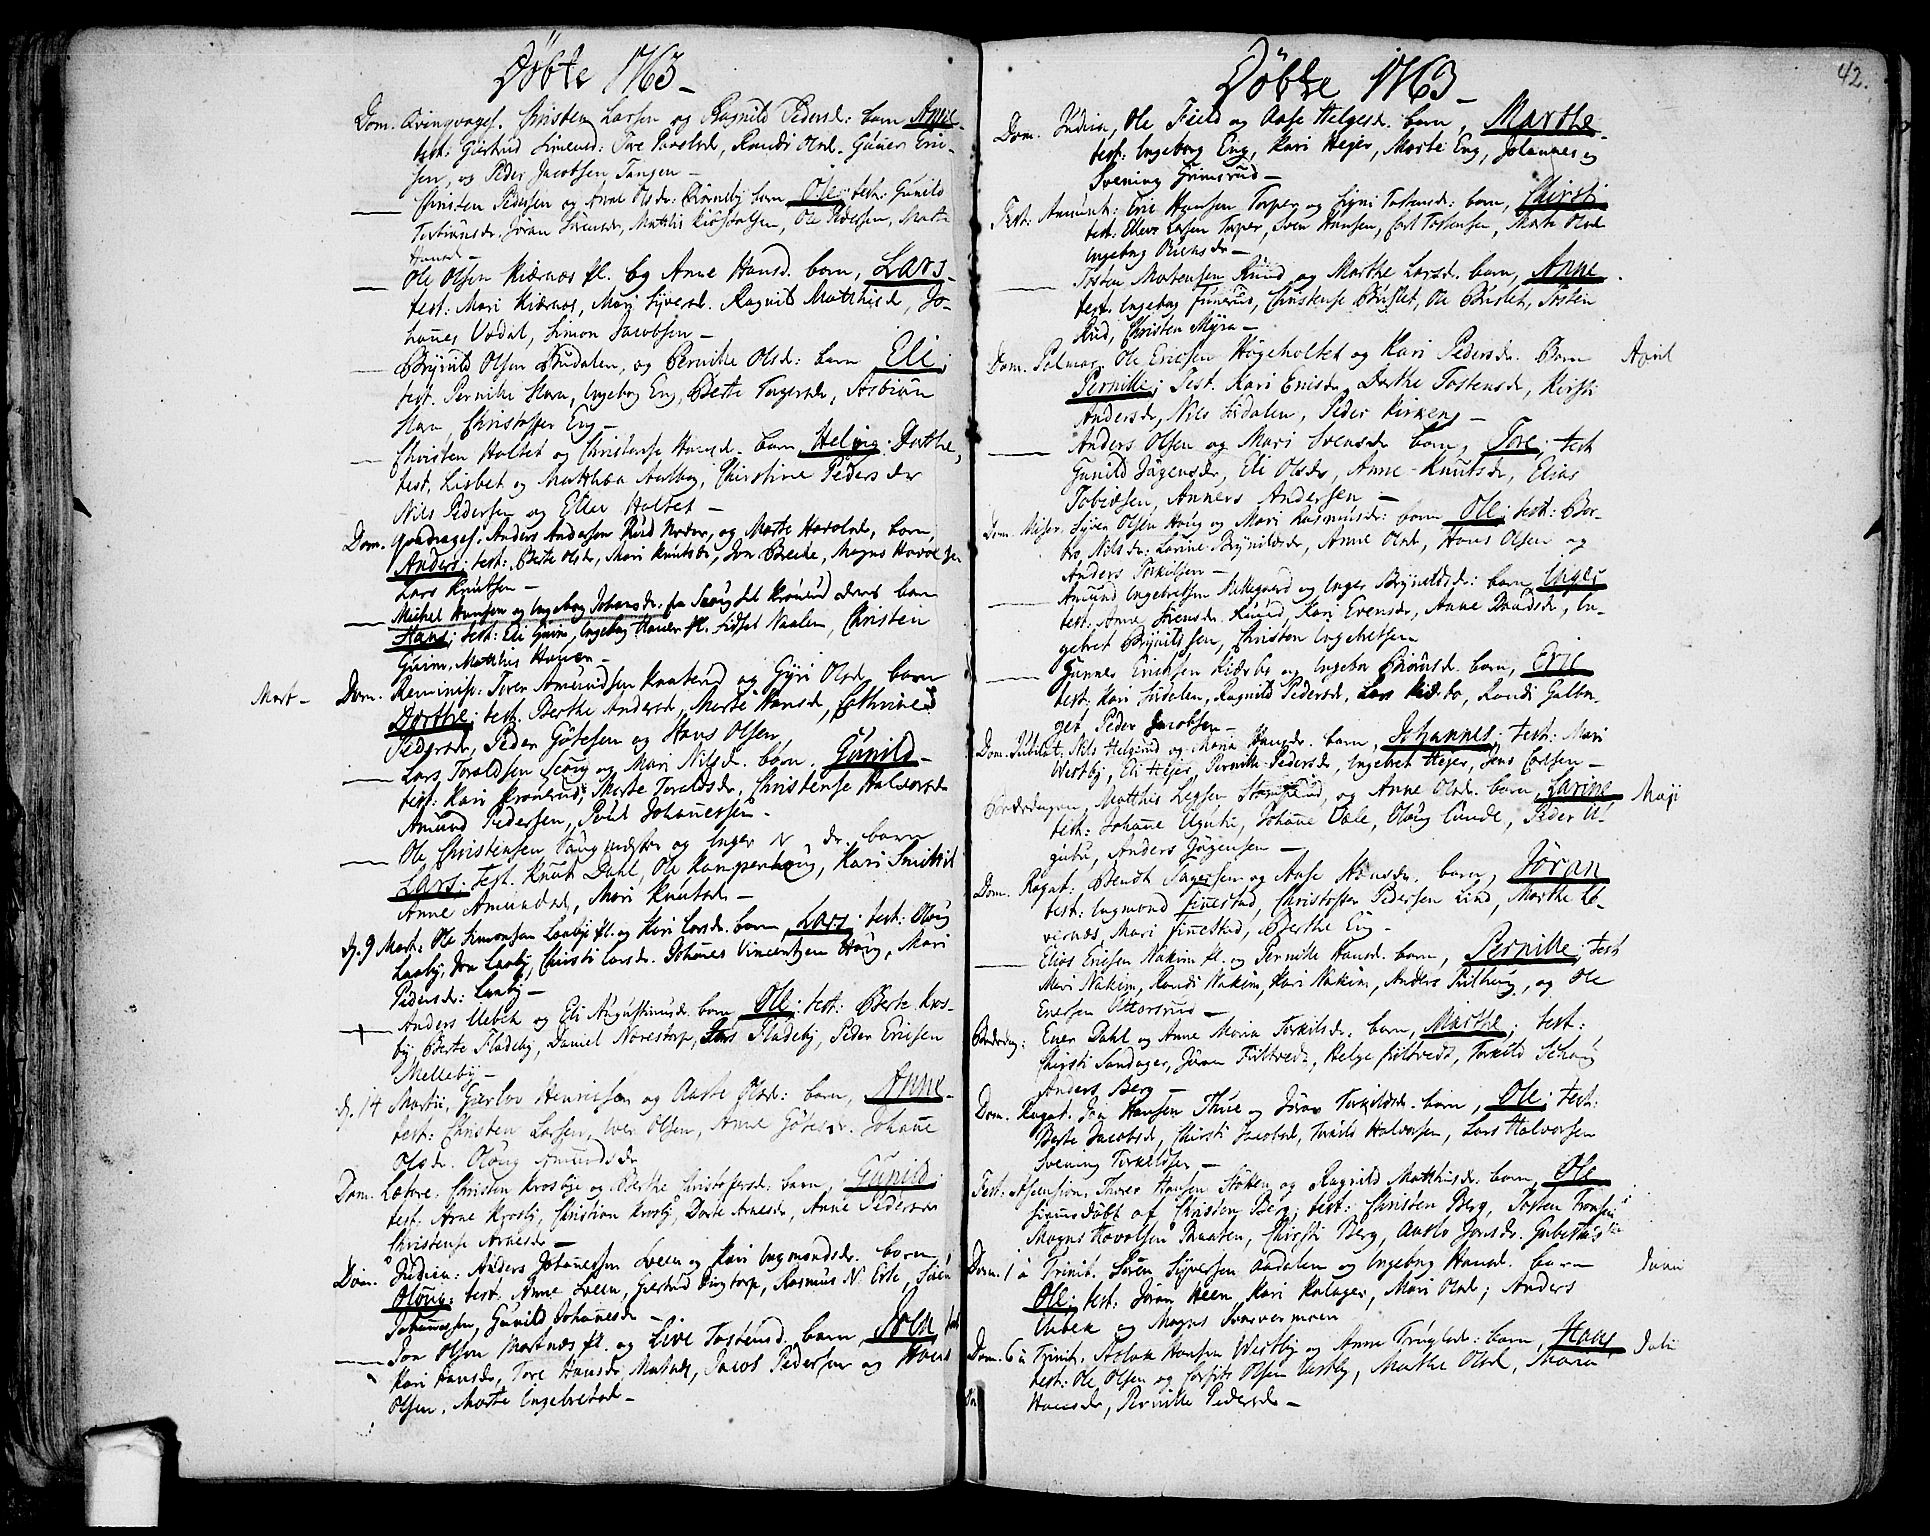 Døbte 1763
Dom. Qvinqvages. Christen Larsen og Ragnild Pedersd: barn Anne
test: Giertrud Simensd: Tore Paulsd, Randi Olsd. Guner Eric-
sen, og Peder Jacobsen Tangen
Christen Pedersen og Anne Olsdr. barn Ole; test: Gunild
Jøran Sørensdr, Matthis, Ole Pedersen, Marte
Hansd
Ole Olsen Kiernæs fl. og Anne Hansd. barn, Lars
test: Mari Kiernæs, Mari Syversd. Ragnild Matthisd, Jo-
hannes Vadal, Simon Jacobsen
Brynild Olsen Sudalen, og Pernille Olsd: barn Eli;
test. Pernille Ham, Ingebog Eng, Berte Torgersdr, Asbiøn
Ham, Christoffer Eng
Christen Holtet og Christense Hansd. barn Helvig. Dorthe,
test, Lisbet og Matthea Aalbog, Christine Pedersdr
Nils Pedersen og Eller Holtet
Dom. Qvadrages: Anders Andersen Rud Nordre, og Marte Havolsd, barn,
Anders; test: Berte Olsdr, Mari Knutsdr, Jon Brekke, Magns Havolsen
Lars Knutsen
Michel Hansen og Ingebog Johansdr. fra Scoug barn
Hans; test: Eli Guim, Ingebog Hauer fl. Sidsel Naalen, Christen
Guim, Matthis Hauen
Mart. Dom. Reminisc: Torer Amundsen Knaterud og Gyri Olsd. barn
Dorthe; test. Berthe Andersd, Marte Hansd, Cathrine
Pedersd, Peder Gøtesen og Hans Olsen
Lars Toraldsen Scoug og Mari Nilsd. barn. Gunild
test: Kari Kronerud, Marte Toraldsdr, Christense Halvorsdr
Amund Pedersen, Poul Johannessen
Ole Christensen og Inger N dr. barn
Lars; test. Knut Dahl, Ole Kampenhoug, Kari Smitstil
Anne Amundsd, Mari Knutsd
d. 9 Mart: Ole Simonsen Laaby fl. og Kari Larsd. barn Lars; test: Oloug
Laaby, Jon Laaby, Christi Larsdr. Johanes Vincentzen Houg, Mari
Pedersd: Laaby
Anders Uebek og Eli Augustinusd. barn Ole; test: Berte Kros-
by, Berte Fladeby, Daniel Norestorp, Lars Fladeby, Peder Ericsen
Melleby
d. 14 Martii, Gierlov Henricsen og Aaste Olsd: barn, Anne
test: Christen Larsen, Iver Olsen, Anne Gøtesdr. Johanne
Olsdr. Oloug Amundsdr
Dom. Lætare. Christen Krosbye og Berthe Christofersd: barn, Gunild
test. Arne Krosby, Christian Krosby, Dorte Arnesdr, Anne Pedersdr
Christense Arnesdr
Dom. Judica: Anders Johannessen Sveen og Kari Ingmondsdr. barn,
Oloug; test: Anne Sveen, Giertrud Dingtorp, Rasmus N. Erte, Simen
Johannessen, Gunild Johannesdr
Jon Olsen Mortnæs fl. og Live Tostensd. barn, Joen test
Kari Hansdr, Tore Hansdr, Jacob Pedersen og Hans
Olsen, Marte Engebretsdr
42.
Døbte 1763
Dom. Judica, Ole Field og Aase Helgesd. barn, Marthe
test: Ingeborg Eng, Kari Hejer, Marte Eng, Johannes og
Svening Grimsrud
Fest: Anunt: Eric Hansen Torper og Signi Tostensd: barn, Chirsti
test: Ellevs Larsen Torper, Sven Hansen, Carl Tostensen, Marte Olsd
Ingebog Ericsdr
Tosten Mortensen Rund og Marthe Larsd. barn, Anne
test: Ingebog Funerud, Christense Buslet, Ole Buslet, Tosten
Rud, Christen Myra
Dom. Palmar, Ole Ericsen Høgeholtet og Kari Pedersdr. Barn April
Pernille; Test. Kari Ericsdr, Dorthe Tostensdr, Kirsti
Andersdr, Nils Sidalen, Peder Kirkeng
Anders Olsen og Mari Svensdr barn, Tore; test
Gunild Jøgensdr, Eli Olsdr, Anne Knutsdr, Elias
Tobiesen, Anners Andersen
Dom. Miser. Syver Olsen Houg og Mari Rasmusdr: barn Ole; test: Bor-
ro Nilsdr: Larine Brynilsdr, Anne Olsd, Hans Olsen og
Anders Torkilsen
Amund Ingebretsen Kirkegaard og Inger Brynildsdr: barn Inge;
test: Anne Svensdr Knud, Kari Evensdr, Anne Knudsdr, In-
gebret Brynildsen, Christen Ingebretsen
Gunner Ericksen Kierbo og Ingebor Biørnsd. barn, Eric
test; Kari Sidalen, Ragnild Pedersdr, Lars Kierbo, Randi Galbo-
ger Peder Jacobsen
Dom. Jubilat, Nils Helgerud og Maria Hansdr. barn, Johannes; test: Mari
Westby, Eli Hejer, Pernille Pedersdr, Ingebret Hejer, Jens Carlsen
Bededagen, Matthis Legsen Stomsrud, og Anne Olsd. barn, Larine Maji
test: Johanne Ugutu, Johanne Vale, Oloug Lunde, Peder U-
gubu, Anders Jøgensen
Dom. Rogat: Bendt Tagersen og Aase Hansdr. barn, Jøran
test: Ingmond Finestad, Christoffer Pedersen Lind, Marthe Lø-
vernæs, Mari Finestad, Berthe Eng
Elias Ericsen Nakim fl. og Pernille Hansd. barn, Pernille; test
Mari Nakim, Randi Nakim, Kari Nakim, Anders Frithug, og Ole
Enersen Ottersrud
Bededag: Ener Dahl og Anne Maria Torkilsdr. barn, Marthe; test:
Chirsti Sandager, Jøran Filtvedt, Helge Filtvedt, Torkild Schoug
Anders Berg
Dom. Rogat. Jon Hansen Thue og Jøran Torkildsd. barn, Ole; test:
Berte Jacobsd, Chirsti Jacobsd, Torkils Halvorsen, Lars Halvorsen
Svening Torkildsen
Fest: Ascension, Thorer Hansen Støken og Ragnild Matthisdr. barn, Ole
hiemedøbt af Christen Berg; test: Christen Berg, Tosten Fronsen
Magns Havolsen Braaten, Chirsti Berg, Aaste Jonsdr.
Dom. 1 a Trinit. Søren Syversen Aadalen og Ingebog Hansd. barn Junii
Ole; test: Jøran Heen, Kari Kalager, Mari Olsd; Anders
Uebek og Magns Svarvermoen
Dom. 6 a Trinit. Aslak Hansen Westby og Anne Trugelsd: barn, Hans Julii
test: Ole Olsen og Corfits Olsen Vestby, Marthe Olsd, Maria
Hansdr, Pernille Pedersdr